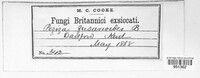 M. C. COOKE.
Fungi Britannici exsiccati.
Peziza fusarioides B
Darenth Kent
May 1868
No.